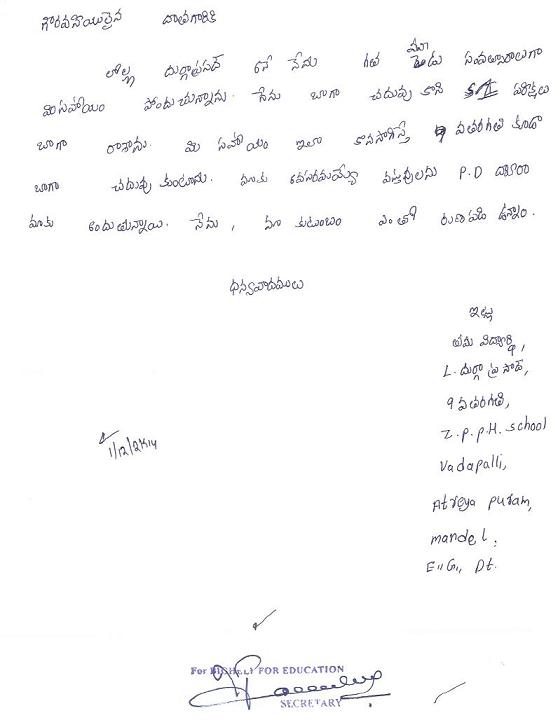 గౌరవనీయులైన దాతగారికి
లోల్ల దుర్గాప్రసాద్ అనే నేను గత మూడు సంవత్సరాలుగా
మీ సహాయం పొందుచున్నాను. నేను బాగా చదువు కొని S/I పరీక్షలు
బాగా రాశాను. మీ సహాయం ఇలా కొనసాగిస్తే 9 వతరగతి కూడా
బాగా చదువు కుంటాను. మాకు అవసరమయ్యే వస్తువులను P.D ద్వారా
మాకు అందుతున్నాయి. నేను, మా కుటుంబం ఎంతో రుణపడి ఉన్నాం.
ధన్యవాదములు
ఇట్లు
తమ విద్యార్థి,
L. దుర్గా ప్రసాద్,
9 వతరగతి,
Z.P.P.H. School
Vadapalli,
Atreya puram,
mandel,
E.G., Dt.
1/12/2K14
For FOR EDUCATION
SECRETARY